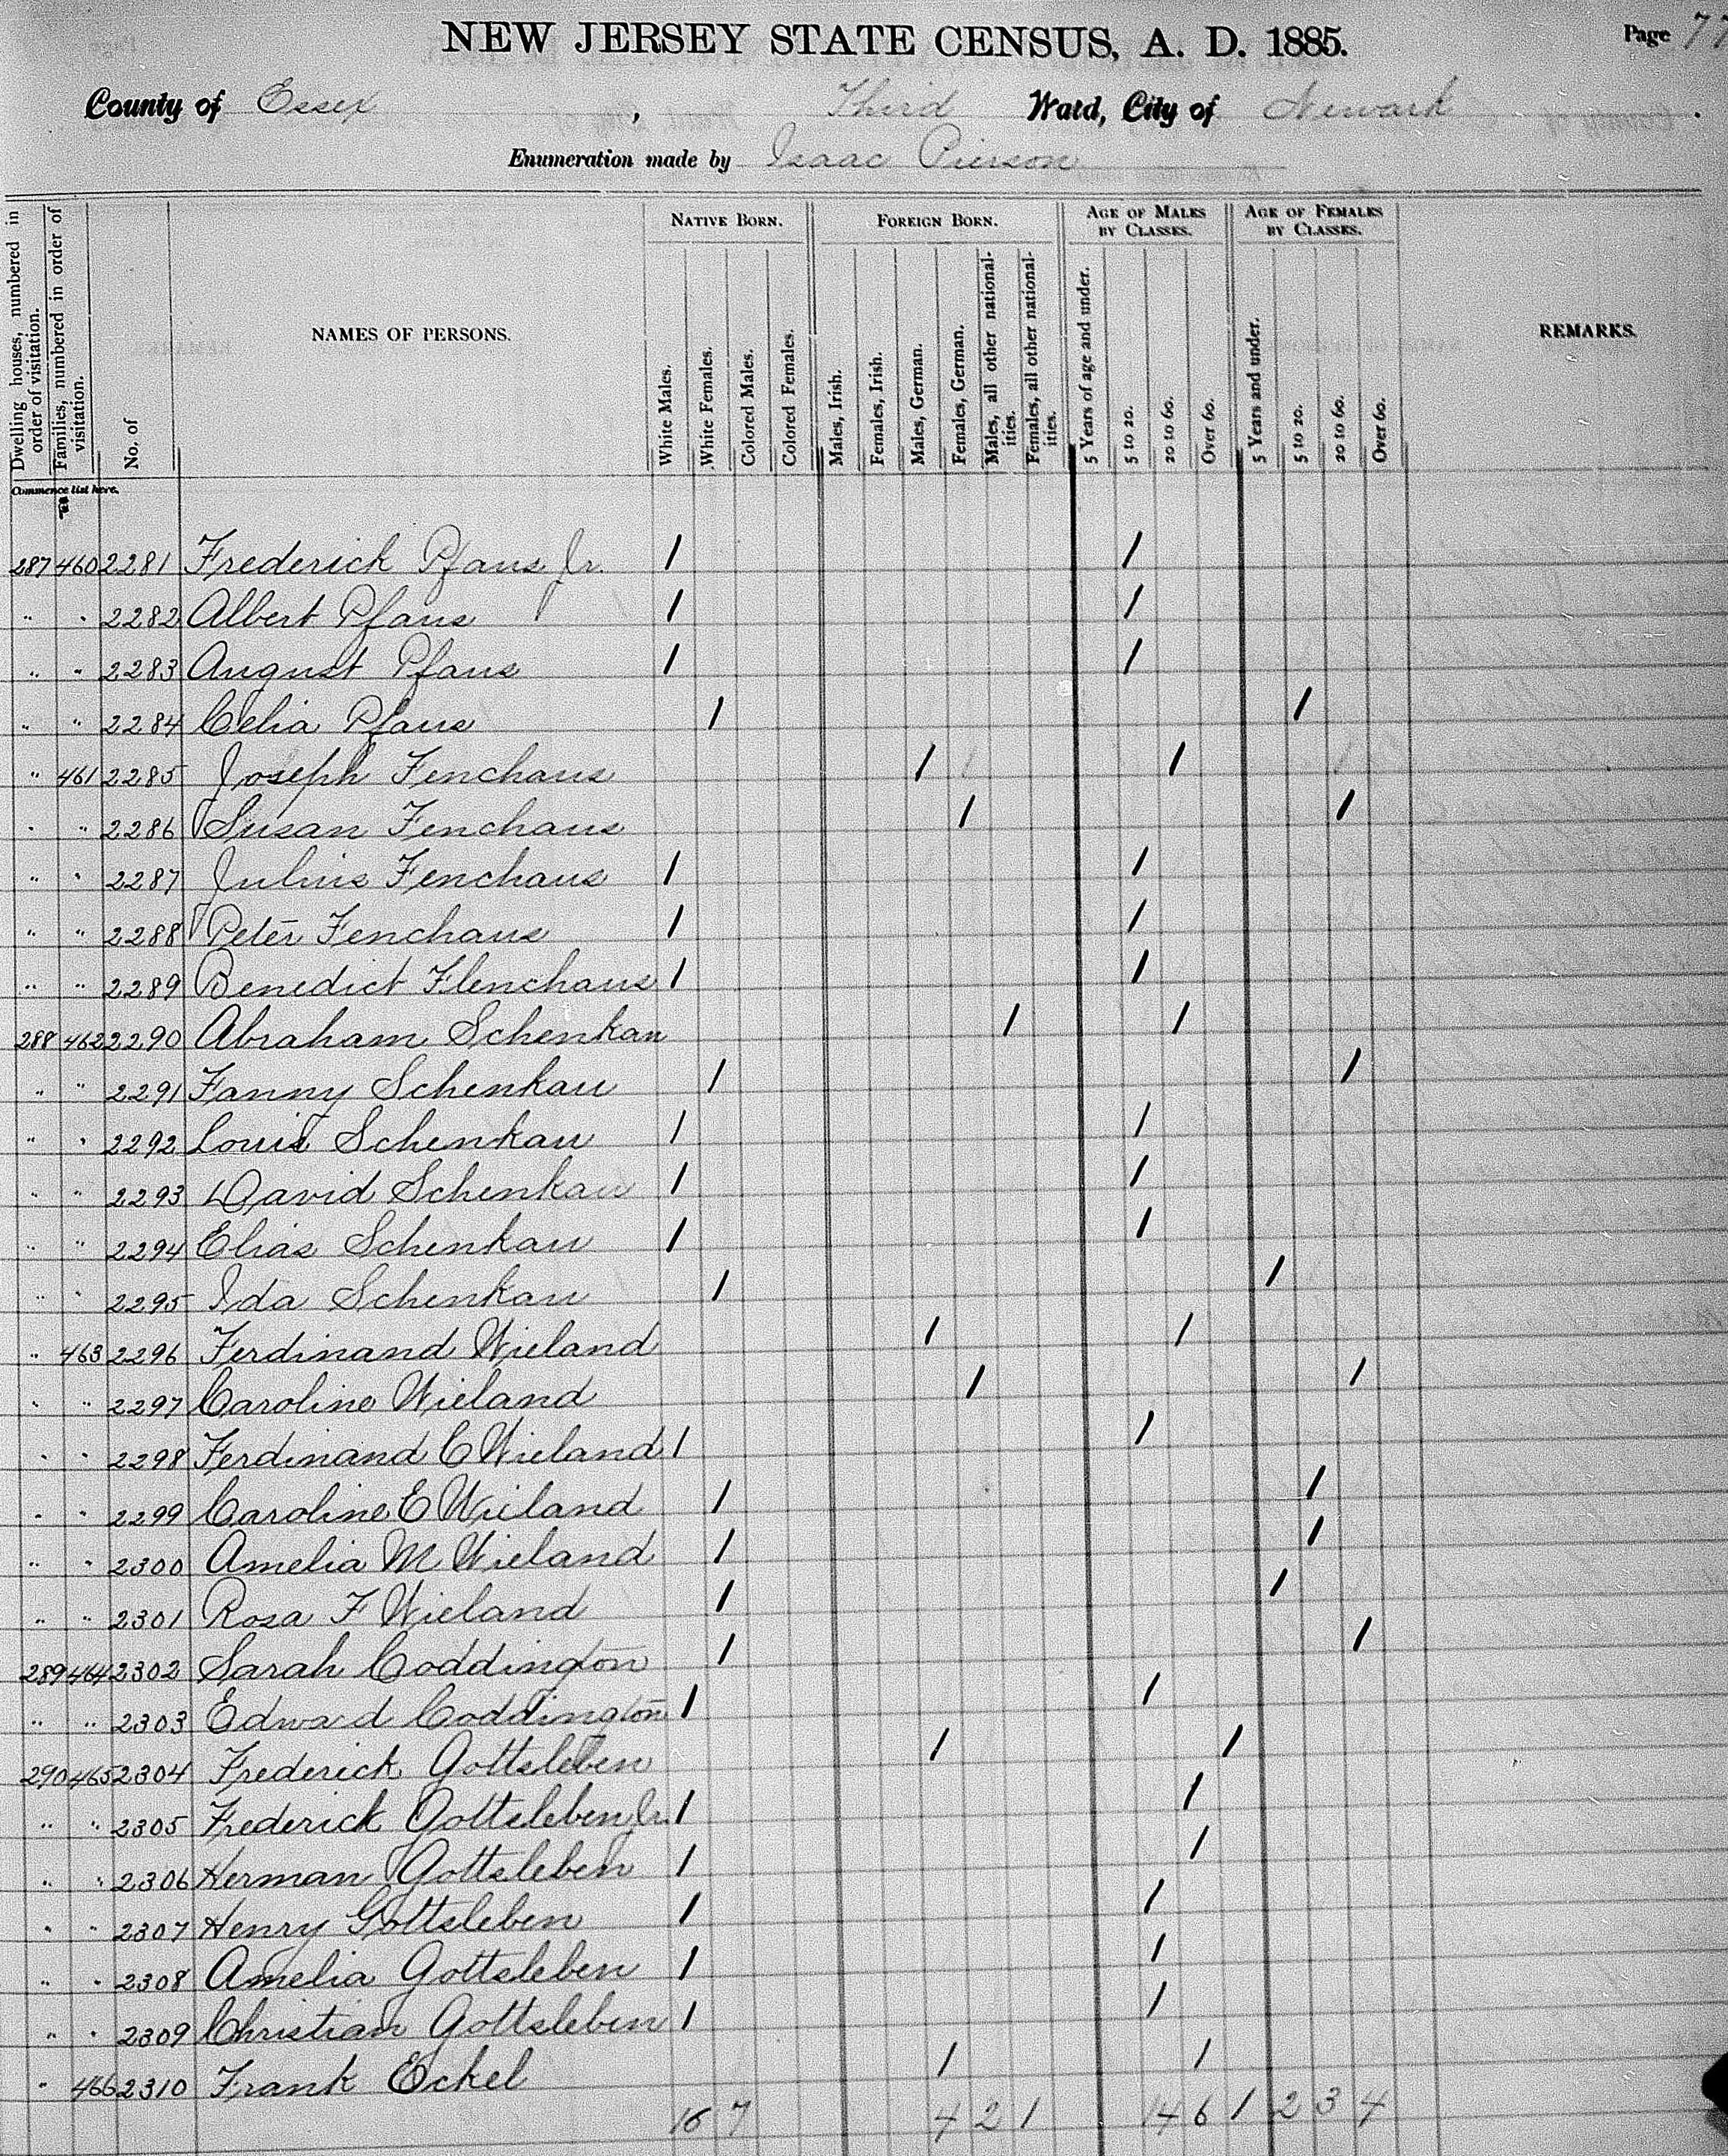 NEW JERSEY STATE CENSUS, A. D. 1885. Page 77
County of Essex, Third Ward, City of Newark.
Enumeration made by Isaac Pierson
Dwelling houses, numbered in order of visitation.
Families, numbered in order of visitation.
No. of
NAMES OF PERSONS.
NATIVE BORN.
White Males.
White Females.
Colored Males.
Colored Females.
FOREIGN BORN.
Males, Irish.
Females, Irish.
Males, German.
Females, German.
Males, all other nationalities.
Females, all other nationalities.
AGE OF MALES BY CLASSES.
5 Years of age and under.
5 to 20.
20 to 60.
Over 60.
AGE OF FEMALES BY CLASSES.
5 Years and under.
5 to 20.
20 to 60.
Over 60.
REMARKS.
Commence list here.
287 460 2281 Frederick Pfaus Jr. 1 1
" " 2282 Albert Pfaus 1 1
" " 2283 August Pfaus 1 1
" " 2284 Celia Pfaus 1 1
" 461 2285 Joseph Fenchaus 1 1
" " 2286 Susan Fenchaus 1 1
" " 2287 Julius Fenchaus 1 1
" " 2288 Peter Fenchaus 1 1
" " 2289 Benedict Flenchaus 1 1
288 462 2290 Abraham Schenkau 1 1
" " 2291 Fanny Schenkau 1 1
" " 2292 Louis Schenkau 1 1
" " 2293 David Schenkau 1 1
" " 2294 Elias Schenkau 1 1
" " 2295 Ida Schenkau 1 1
" 463 2296 Ferdinand Wieland 1 1
" " 2297 Caroline Wieland 1 1
" " 2298 Ferdinand C Wieland 1 1
" " 2299 Caroline E Wieland 1 1
" " 2300 Amelia M Wieland 1 1
" " 2301 Rosa F Wieland 1 1
289 464 2302 Sarah Coddington 1 1
" " 2303 Edward Coddington 1 1
290 465 2304 Frederick Gottsleben 1 1
" " 2305 Frederick Gottsleben Jr. 1 1
" " 2306 Herman Gottsleben 1 1
" " 2307 Henry Gottsleben 1 1
" " 2308 Amelia Gottsleben 1 1
" " 2309 Christian Gottsleben 1 1
" 466 2310 Frank Eckel 1 1
16 7 4 2 1 14 6 1 2 3 4